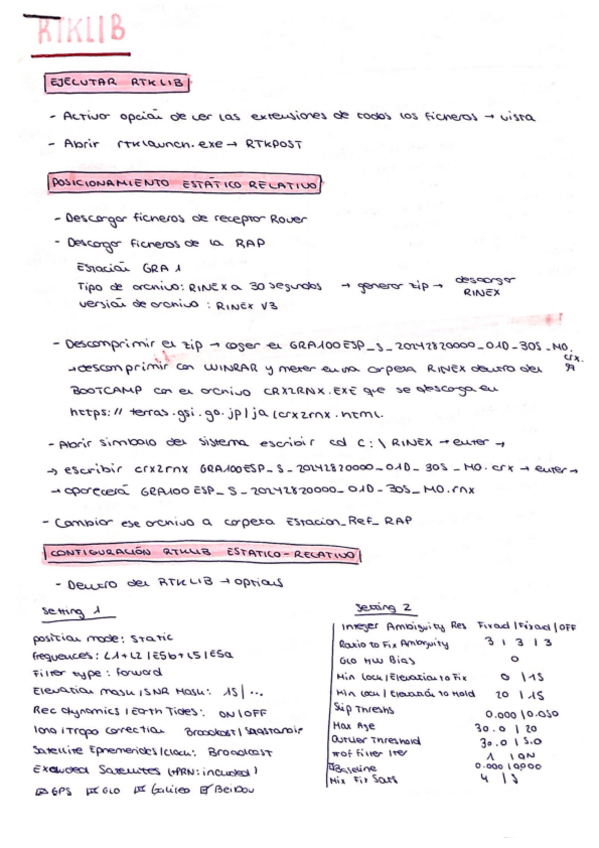 RTKLIB
EJECUTAR RTKLIB
- Activar opción de ver las extensiones de todos los ficheros → vista
- Abrir rtklaunch.exe → RTKPOST
POSICIONAMIENTO ESTÁTICO RELATIVO
- Descargar ficheros de receptor Rover
- Descargar ficheros de la RAP
Estación GRA1
Tipo de archivo: RINEX a 30 segundos → generar zip → descargar RINEX
versión de archivo : RINEX V3
- Descomprimir el zip → coger el GRA100ESP_S_20242820000_01D_30S_MO.crx.gz
→ descomprimir con WINRAR y meter en una carpeta RINEX dentro del
BOOTCAMP con el archivo CRX2RNX.EXE que se descarga en
https://terras.gsi.go.jp/ja/crx2rnx.html.
- Abrir simbolo del sistema escribir cd C:\RINEX → enter →
→ escribir crx2rnx GRA100ESP_S_20242820000_01D_30S_MO.crx → enter →
→ aparecerá GRA100ESP_S_20242820000_01D_30S_MO.rnx
- Cambiar ese archivo a carpeta Estacion_Ref_RAP
CONFIGURACIÓN RTKLIB ESTATICO-RELATIVO
- Dentro del RTKLIB → options
Setting 1
position mode: Static
frequences: L1+L2/E5b+L5/E5a
Filter type: forward
Elevation mask/SNR Mask: 15|...
Rec dynamics/Earth Tides: ON|OFF
Iono/Tropo correction Broadcast/Saastamoin
Satellite Ephemerides/Clock: Broadcast
Excluded Satellites (+PRN: included)
☑ GPS ☑ GLO ☑ Galileo ☑ BeiDou
Setting 2
Integer Ambiguity Res Fixed|Fixed|OFF
Ratio to Fix Ambiguity 3 | 3 | 3
Glo HW Bias 0
Min Lock/Elevation to Fix 0 | 15
Min Lock/Elevación to Hold 20 | 15
Slip Threshs 0.000|0.050
Max Age 30.0 | 20
Outlier Threshold 30.0 | 5.0
# of Filter Iter 1 | ON
☐ Baseline 0.000|0.000
Mix Fix Sats 4 |